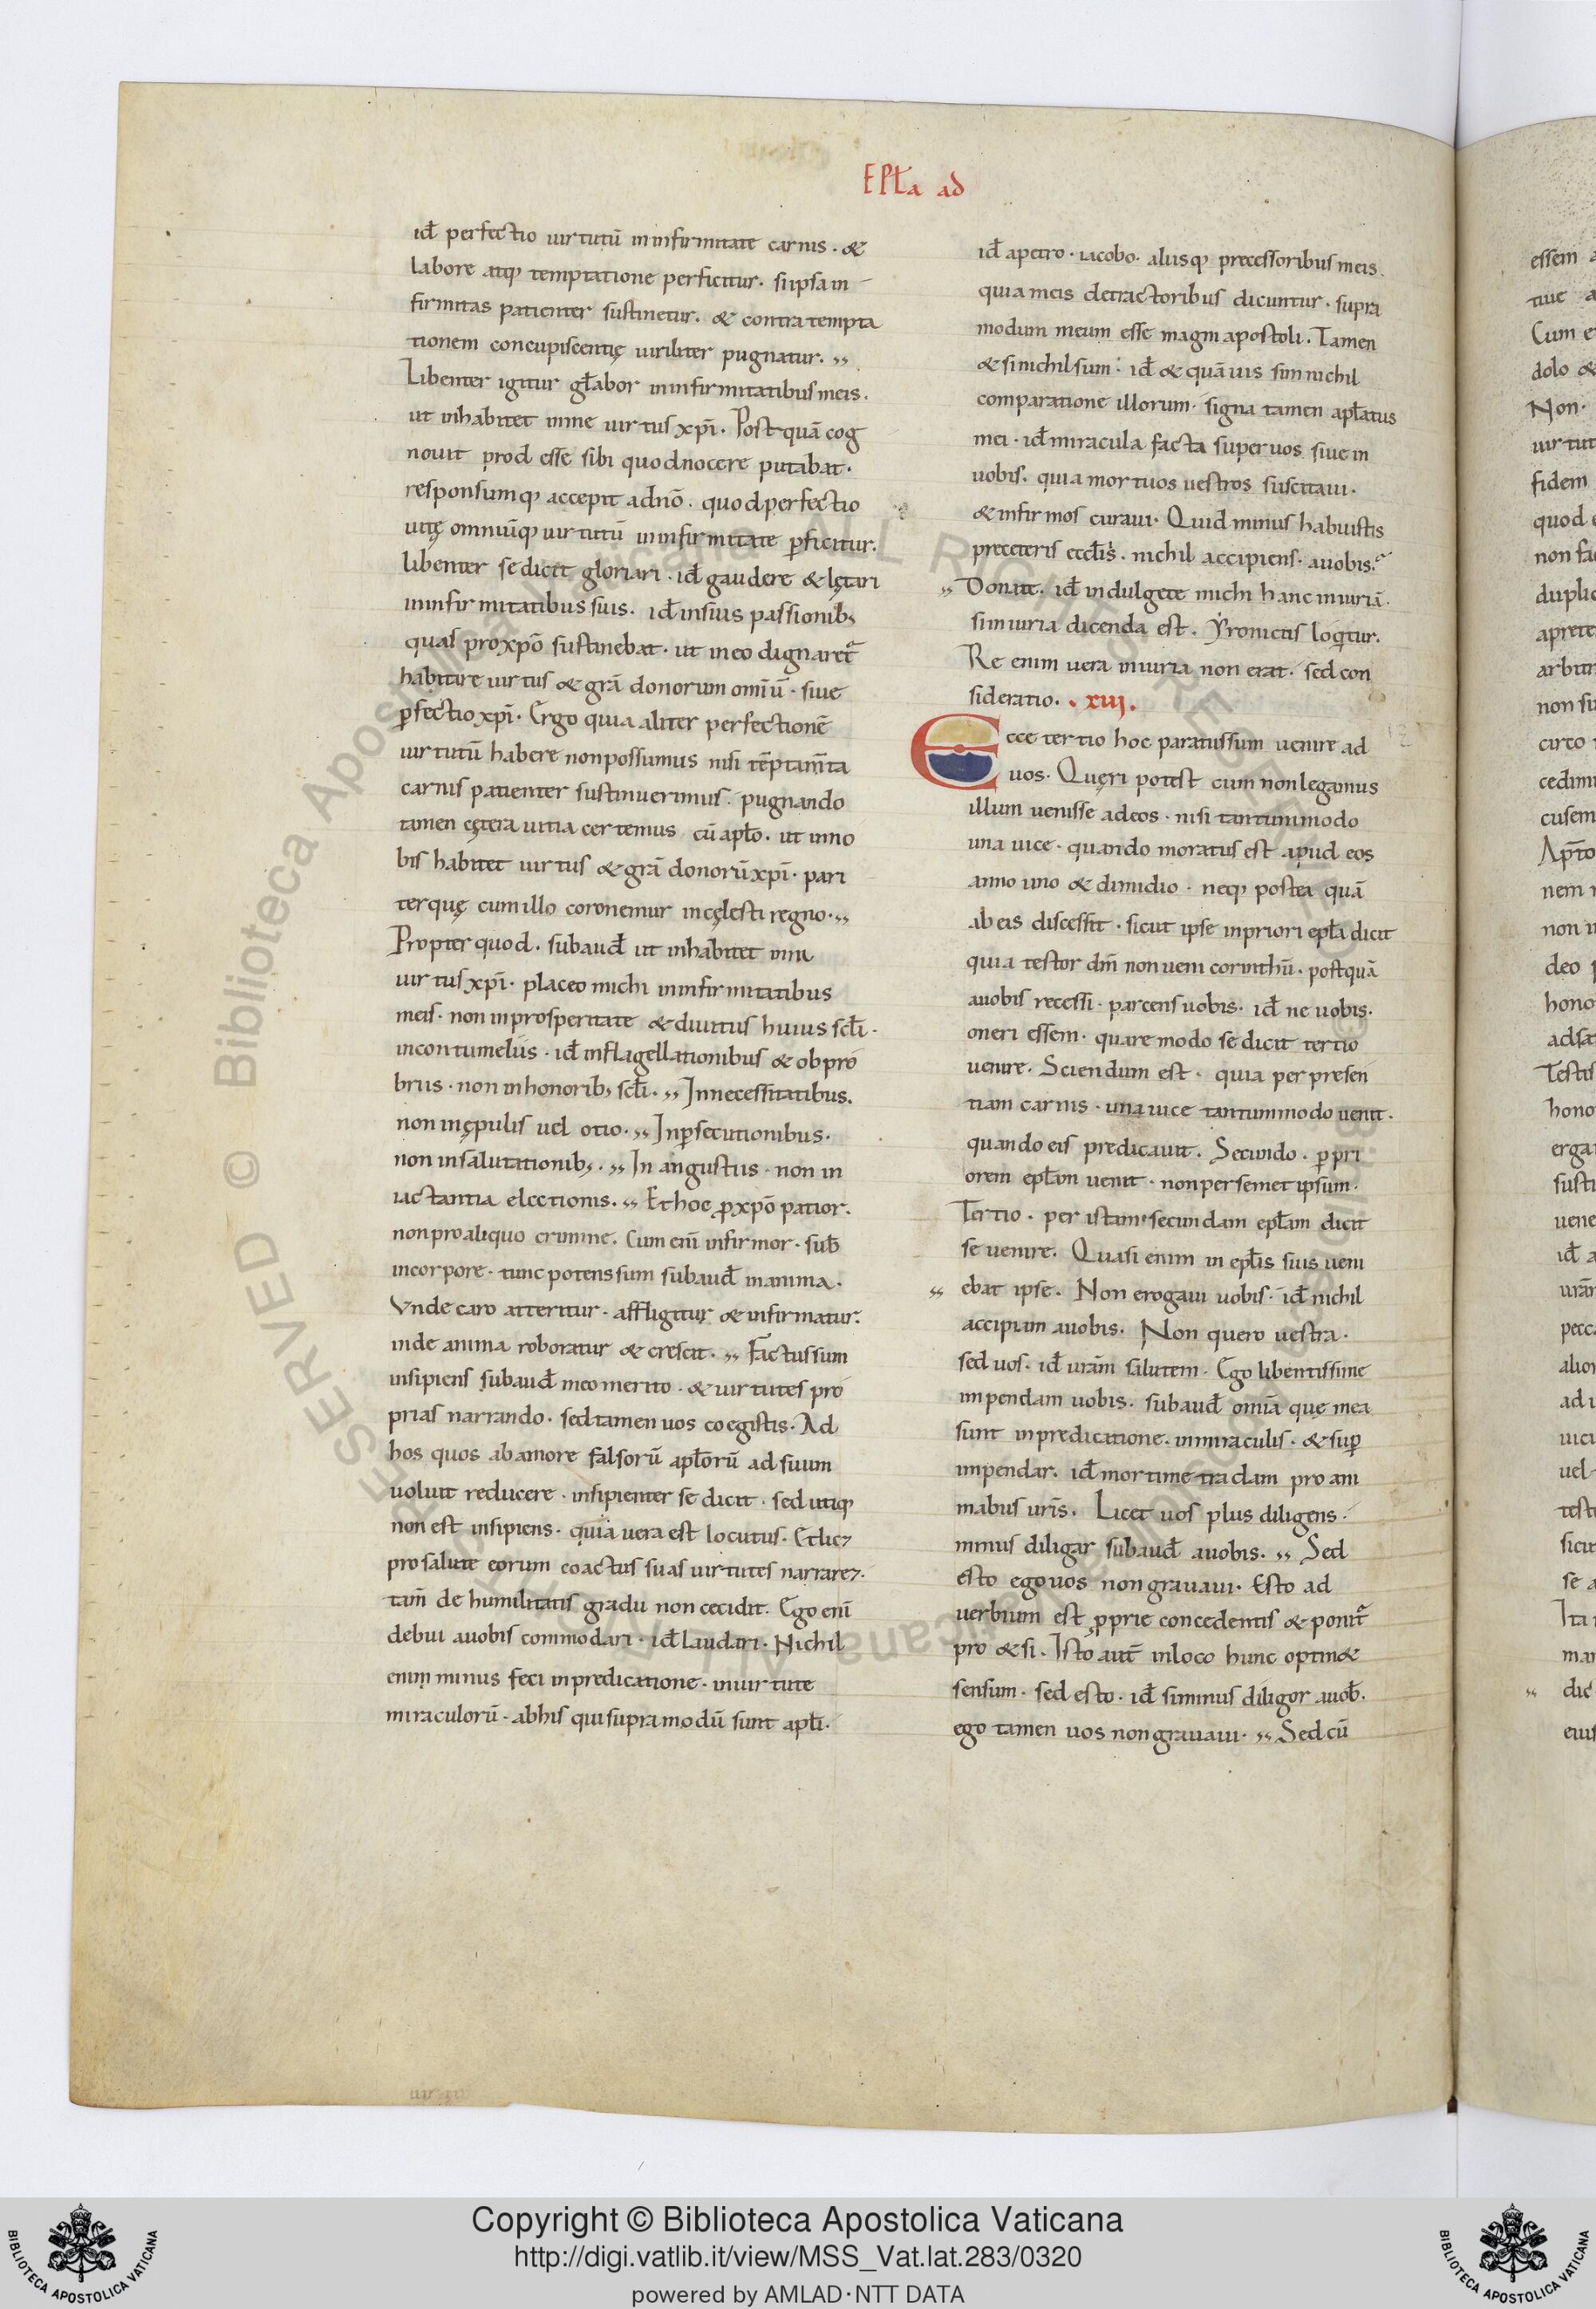 EPŁa ad
id̄ perfectio uirtutū ininfirmitate carnis. &
labore atq; temptatione perficitur. si ipsa in
firmitas patienter sustinetur. & contra tempta
tionem concupiscentię uiriliter pugnatur.
Libenter igitur gƚabor ininfirmitatibus meis.
ut inhabitet inme uirtus xpī. Postquā cog
nouit prodesse sibi quod nocere putabat.
responsumq; accepit adnō. quod perfectio
uitę omniūq; uirtutū ininfirmitate p̲ficitur.
libenter se dicit gloriari. id̄ gaudere & lętari
ininfirmitatibus suis. id̄ insuis passionib;
quas proxpō sustinebat. ut ineo dignaret᷑
habitare uirtus & grā donorum omīū. siue
p̲fectio xpī. Ergo quia aliter perfectionē
uirtutū habere non possumus nisi tēptam̄ta
carnis patienter sustinuerimus. pugnando
tamen cętera uitia certemus cū apƚo. ut inno
bis habitet uirtus & grā donorū xpī. pari
terquę cum illo coronemur incęlesti regno.
Propter quod. subaud̄ ut inhabitet inme
uirtus xpī. placeo michi ininfirmitatibus
meis. non inprosperitate & diuitiis huius scƚi.
incontumeliis. id̄ inflagellationibus & obpro
briis. non inhonorib; scƚi. Innecessitatibus.
non inępulis uel otio. Inp̲secutionibus.
non insalutationib;. In angustiis. non in
iactantia electionis. Et hoc ꝓxpō patior.
non proaliquo crimine. Cum enī infirmor. sub̄
incorpore. tunc potens sum subaud̄ inanima.
Vnde caro atteritur. affligitur & infirmatur.
inde anima roboratur & crescit. Factus sum
insipiens subaud̄ meo merito. & uirtutes pro
prias narrando. sed tamen uos coegistis. Ad
hos quos abamore falsorū apƚorū ad suum
uoluit reducere. insipienter se dicit. sed utiq;
non est insipiens. quia uera est locutus. Etlic&
pro salute eorum coactus suas uirtutes narrar&.
tam̄ de humilitatis gradu non cecidit. Ego enī
debui auobis commodari. id̄ laudari. Nichil
enim minus feci inpredicatione. inuirtute
miraculorū. abhis qui supramodū sunt apƚi.
id̄ apetro. iacobo. aliisq; precessoribus meis.
quia meis detractoribus dicuntur. supra
modum meum esse magni apostoli. Tamen
& si nichil sum. id̄ & quāuis sim nichil
comparatione illorum. signa tamen apƚatus
mei. id̄ miracula facta super uos siue in
uobis. quia mortuos uestros suscitaui.
& infirmos curaui. Quid minus habuistis
preceteris eccƚis. nichil accipiens. auobis.
Donate. id̄ indulgete michi hanc iniuriā.
si iniuria dicenda est. Yronicus loq̇tur.
Re enim uera iniuria non erat. sed con
sideratio. . xuj.
Ecce tertio hoc paratus sum uenire ad
uos. Quęri potest cum non legamus
illum uenisse adeos. nisi tantummodo
una uice. quando moratus est apud eos
anno uno & dimidio. neq; postea quā
ab eis discessit. sicut ipse inpriori epƚa dicit
quia testor dm̄ non ueni corinthū. postquā
auobis recessi. parcens uobis. id̄ ne uobis.
oneri essem. quare modo se dicit tertio
uenire. Sciendum est. quia per presen
tiam carnis. una uice tantummodo uenit.
quando eis predicauit. Secundo. p̲ pri
orem epƚam uenit. non per semet ipsum.
Tertio. per istam secundam epƚam dicit
se uenire. Quasi enim in epƚis suis ueni
ebat ipse. Non erogaui uobis. id̄ nichil
accipiam auobis. Non quero uestra.
sed uos. id̄ uram̄ salutem. Ego libentissime
impendam uobis. subaud̄ omīa quę mea
sunt inpredicatione. inmiraculis. & sup̲
impendar. id̄ morti me tradam pro ani
mabus uris̄. Licet uos plus diligens.
minus diligar subaud̄ auobis. Sed
esto ego uos non grauaui. Esto ad
uerbium est ꝓprie concedentis & ponit᷑
pro & si. Isto aut̄ inloco hunc optin&
sensum. sed esto. id̄ si minus diligor auob̄.
ego tamen uos non grauaui. Sed cū
essem
tiue
Cum e
dolo &
Non.
uirtut
fidem
quod
non fac
duplic
aprete
arbitr
non su
circo
cedimu
cusem
Apƚo
nem
non
deo
hono
ad sa
Testis
hono
erga
susti
uene
id̄ a
urām
pecc
alior
ad
uici
uel
test
sicut
se a
Ita
man
dic
eius
Copyright © Biblioteca Apostolica Vaticana
http://digi.vatlib.it/view/MSS_Vat.lat.283/0320
powered by AMLAD·NTT DATA
BIBLIOTECA APOSTOLICA VATICANA
BIBLIOTECA APOSTOLICA VATICANA